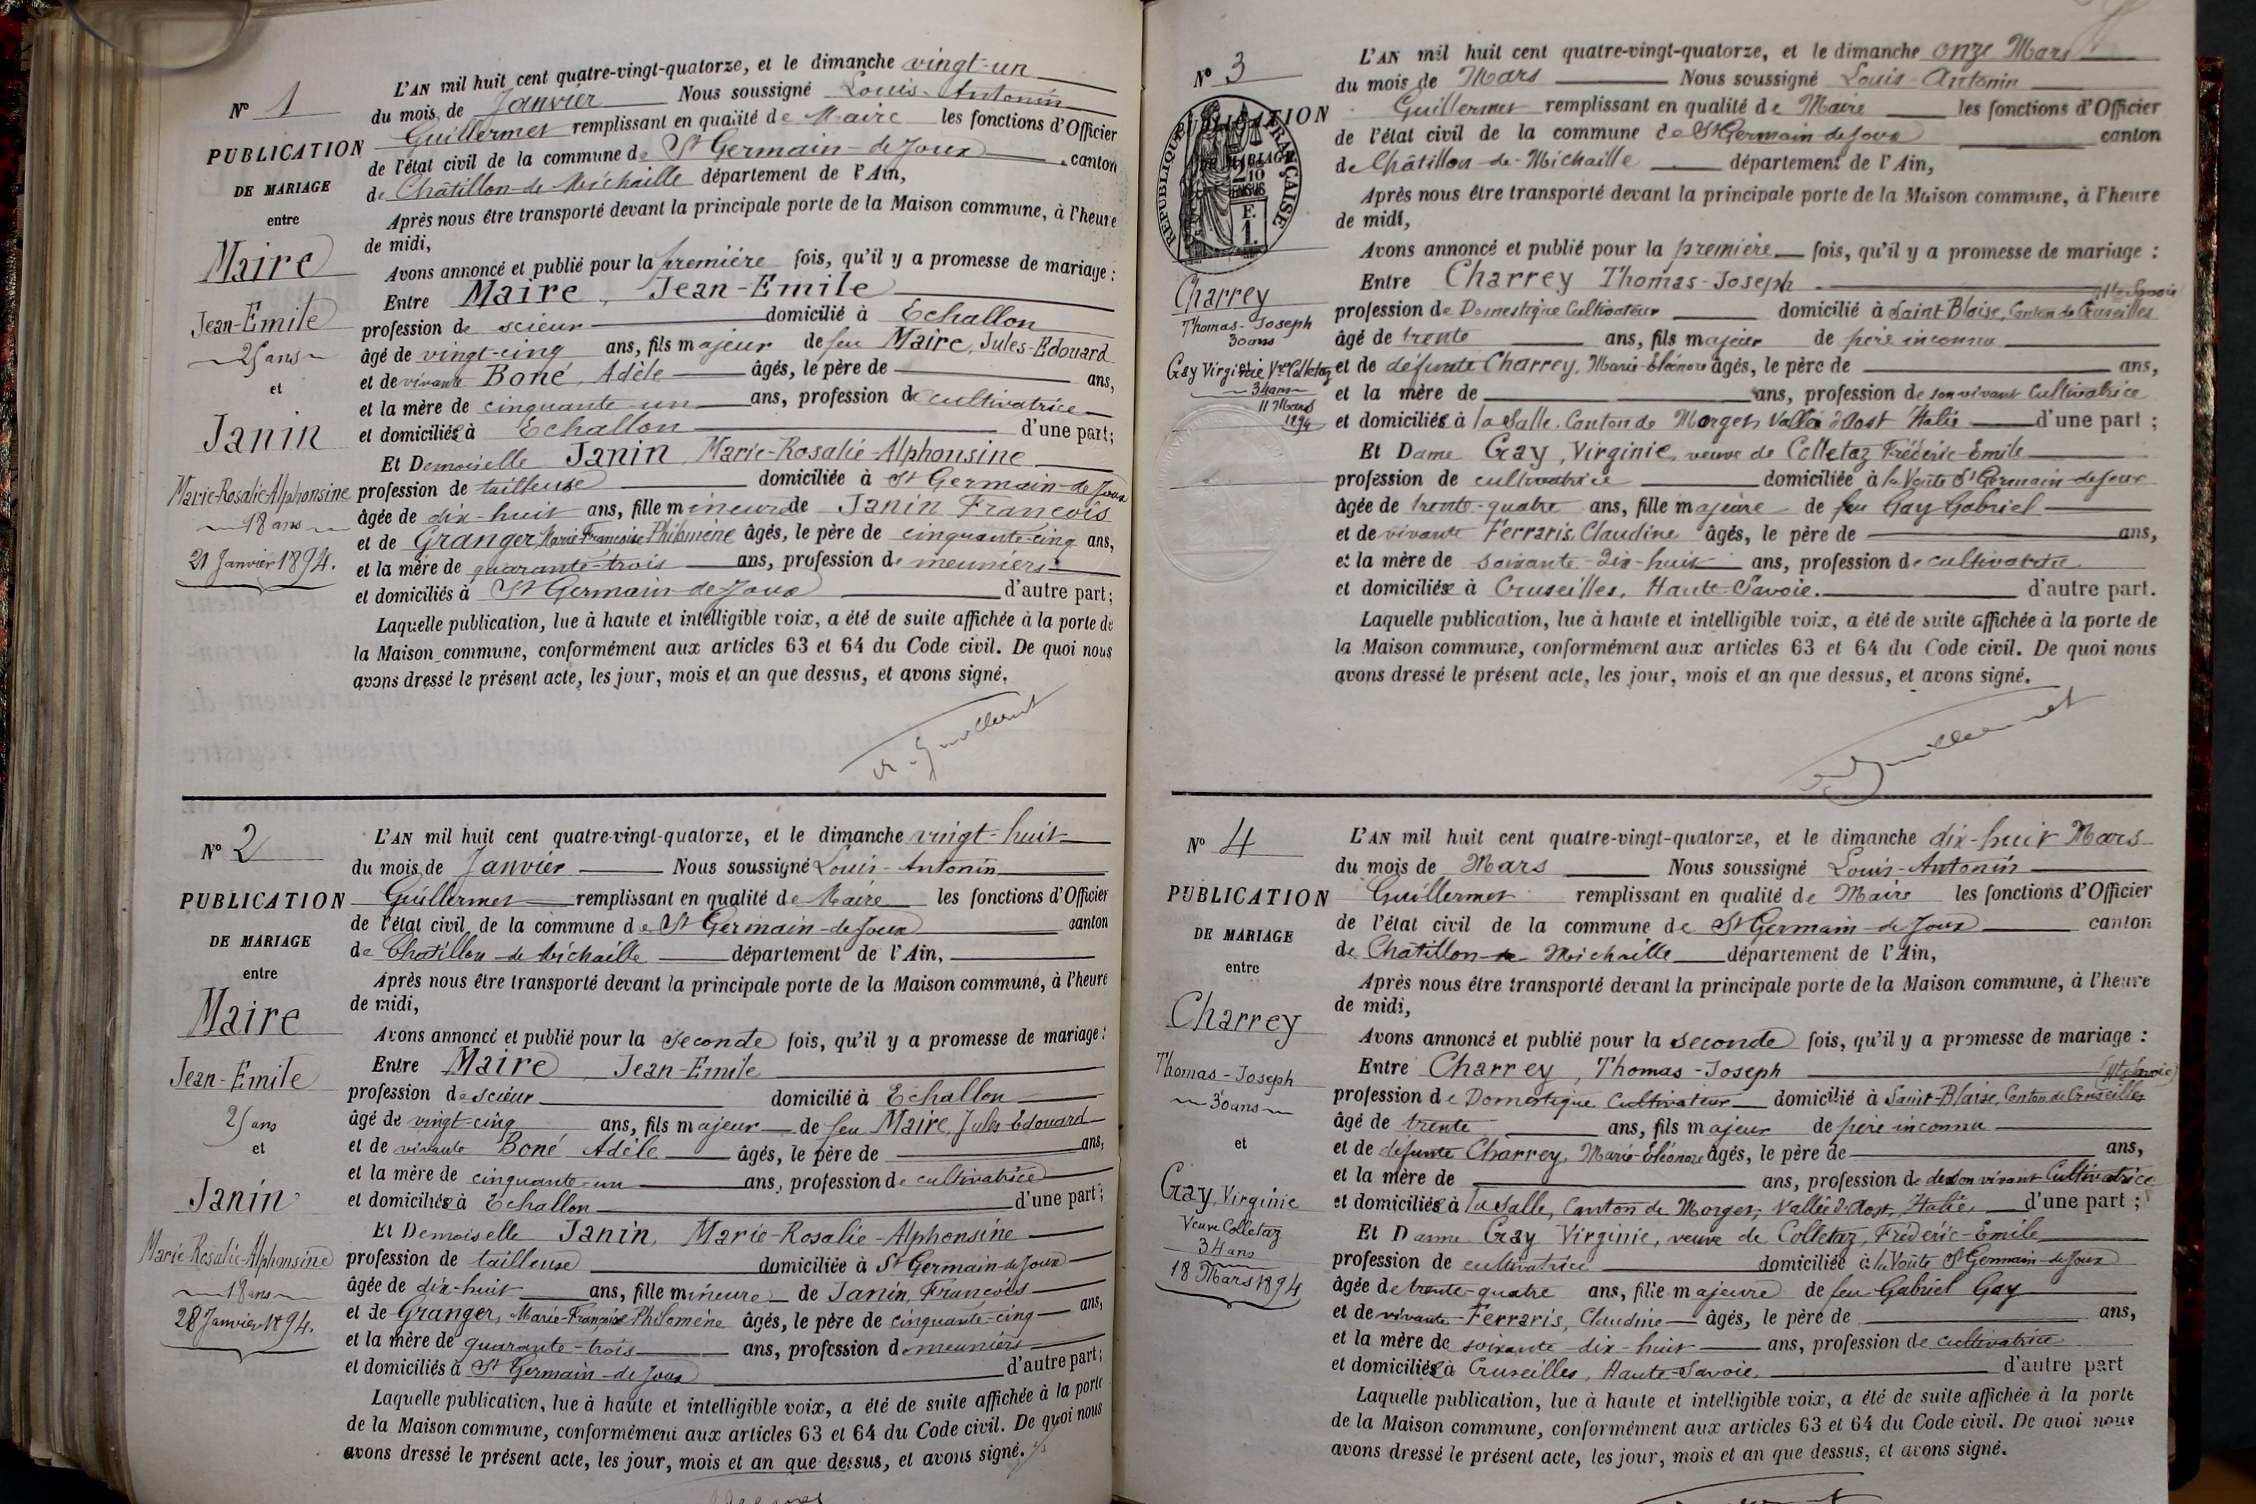 N° 1
PUBLICATION
DE MARIAGE
entre
Maire
Jean-Emile
25 ans
et
Janin
Marie-Rosalie-Alphonsine
18 ans
21 Janvier 1894.
L'AN mil huit cent quatre-vingt-quatorze, et le dimanche vingt-un
du mois de Janvier Nous soussigné Louis-Antonin
Guillermet remplissant en qualité de Maire les fonctions d'Officier
de l'état civil de la commune de St Germain-de-Joux canton
de Châtillon-de-Michaille département de l'Ain,
Après nous être transporté devant la principale porte de la Maison commune, à l'heure
de midi,
Avons annoncé et publié pour la première fois, qu'il y a promesse de mariage :
Entre Maire, Jean-Emile
profession de scieur domicilié à Echallon
âgé de vingt-cinq ans, fils majeur de feu Maire, Jules-Edouard
et de vivante Boné, Adèle âgés, le père de ans,
et la mère de cinquante-un ans, profession de cultivatrice
et domiciliés à Echallon d'une part ;
Et Demoiselle Janin, Marie-Rosalie-Alphonsine
profession de tailleuse domiciliée à St Germain-de-Joux
âgée de dix-huit ans, fille mineure de Janin François
et de Granger, Marie Françoise Philomène âgés, le père de cinquante-cinq ans,
et la mère de quarante-trois ans, profession de meuniers
et domiciliés à St Germain-de-Joux d'autre part ;
Laquelle publication, lue à haute et intelligible voix, a été de suite affichée à la porte de
la Maison commune, conformément aux articles 63 et 64 du Code civil. De quoi nous
avons dressé le présent acte, les jour, mois et an que dessus, et avons signé.
Guillermet
N° 2
PUBLICATION
DE MARIAGE
entre
Maire
Jean-Emile
25 ans
et
Janin
Marie-Rosalie-Alphonsine
18 ans
28 Janvier 1894.
L'AN mil huit cent quatre-vingt-quatorze, et le dimanche vingt-huit
du mois de Janvier Nous soussigné Louis-Antonin
Guillermet remplissant en qualité de Maire les fonctions d'Officier
de l'état civil de la commune de St Germain-de-Joux canton
de Chatillon-de-Michaille département de l'Ain,
Après nous être transporté devant la principale porte de la Maison commune, à l'heure
de midi,
Avons annoncé et publié pour la seconde fois, qu'il y a promesse de mariage :
Entre Maire Jean-Emile
profession de scieur domicilié à Echallon
âgé de vingt-cinq ans, fils majeur de feu Maire, Jules-Edouard
et de vivante Boné Adèle âgés, le père de ans,
et la mère de cinquante-un ans, profession de cultivatrice
et domiciliés à Echallon d'une part ;
Et Demoiselle Janin, Marie-Rosalie-Alphonsine
profession de tailleuse domiciliée à St Germain-de-Joux
âgée de dix-huit ans, fille mineure de Janin, François
et de Granger, Marie-Françoise-Philomène âgés, le père de cinquante-cinq ans,
et la mère de quarante-trois ans, profession de meuniers
et domiciliés à St Germain-de-Joux d'autre part ;
Laquelle publication, lue à haute et intelligible voix, a été de suite affichée à la porte
de la Maison commune, conformément aux articles 63 et 64 du Code civil. De quoi nous
avons dressé le présent acte, les jour, mois et an que dessus, et avons signé.
N° 3
PUBLICATION
DE MARIAGE
RÉPUBLIQUE FRANÇAISE
2/10
EN SUS
F.
1.
Charrey
Thomas-Joseph
30 ans
Gay Virginie Vve Colletaz
34 ans
11 Mars
1894
L'AN mil huit cent quatre-vingt-quatorze, et le dimanche onze Mars
du mois de Mars Nous soussigné Louis-Antonin
Guillermet remplissant en qualité de Maire les fonctions d'Officier
de l'état civil de la commune de St Germain-de-Joux canton
de Châtillon-de-Michaille département de l'Ain,
Après nous être transporté devant la principale porte de la Maison commune, à l'heure
de midi,
Avons annoncé et publié pour la première fois, qu'il y a promesse de mariage :
Entre Charrey Thomas-Joseph
Hte Savoie
profession de Domestique Cultivateur domicilié à Saint Blaise, Canton de Cruseilles
âgé de trente ans, fils majeur de père inconnu
et de défunte Charrey, Marie-Eléonore âgés, le père de ans,
et la mère de ans, profession de son vivant Cultivatrice
et domiciliés à la Salle, Canton de Morgex Vallée d'Aost Italie d'une part ;
Et Dame Gay, Virginie, veuve de Colletaz Frédéric-Emile
profession de cultivatrice domiciliée à la Voûte St Germain-de-Joux
âgée de trente-quatre ans, fille majeure de feu Gay Gabriel
et de vivante Ferraris, Claudine âgés, le père de ans,
et la mère de soixante-dix-huit ans, profession de cultivatrice
et domiciliés à Cruseilles, Haute-Savoie. d'autre part.
Laquelle publication, lue à haute et intelligible voix, a été de suite affichée à la porte de
la Maison commune, conformément aux articles 63 et 64 du Code civil. De quoi nous
avons dressé le présent acte, les jour, mois et an que dessus, et avons signé.
Guillermet
N° 4
PUBLICATION
DE MARIAGE
entre
Charrey
Thomas-Joseph
30 ans
et
Gay, Virginie
Veuve Colletaz
34 ans
18 Mars 1894
L'AN mil huit cent quatre-vingt-quatorze, et le dimanche dix-huit Mars
du mois de Mars Nous soussigné Louis-Antonin
Guillermet remplissant en qualité de Maire les fonctions d'Officier
de l'état civil de la commune de St Germain-de-Joux canton
de Châtillon-de-Michaille département de l'Ain,
Après nous être transporté devant la principale porte de la Maison commune, à l'heure
de midi,
Avons annoncé et publié pour la seconde fois, qu'il y a promesse de mariage :
Entre Charrey, Thomas-Joseph
(Hte Savoie)
profession de Domestique Cultivateur domicilié à Saint-Blaise, Canton de Cruseilles
âgé de trente ans, fils majeur de père inconnu
et de défunte Charrey, Marie-Eléonore âgés, le père de ans,
et la mère de ans, profession de son vivant Cultivatrice
et domiciliés à la Salle, Canton de Morgex, Vallée d'Aost, Italie, d'une part ;
Et Dame Gay Virginie, veuve de Colletaz, Frédéric-Emile
profession de cultivatrice domiciliée à la Voûte St Germain-de-Joux
âgée de trente-quatre ans, fille majeure de feu Gabriel Gay
et de vivante Ferraris, Claudine âgés, le père de ans,
et la mère de soixante-dix-huit ans, profession de cultivatrice
et domiciliés à Cruseilles, Haute-Savoie, d'autre part
Laquelle publication, lue à haute et intelligible voix, a été de suite affichée à la porte
de la Maison commune, conformément aux articles 63 et 64 du Code civil. De quoi nous
avons dressé le présent acte, les jour, mois et an que dessus, et avons signé.